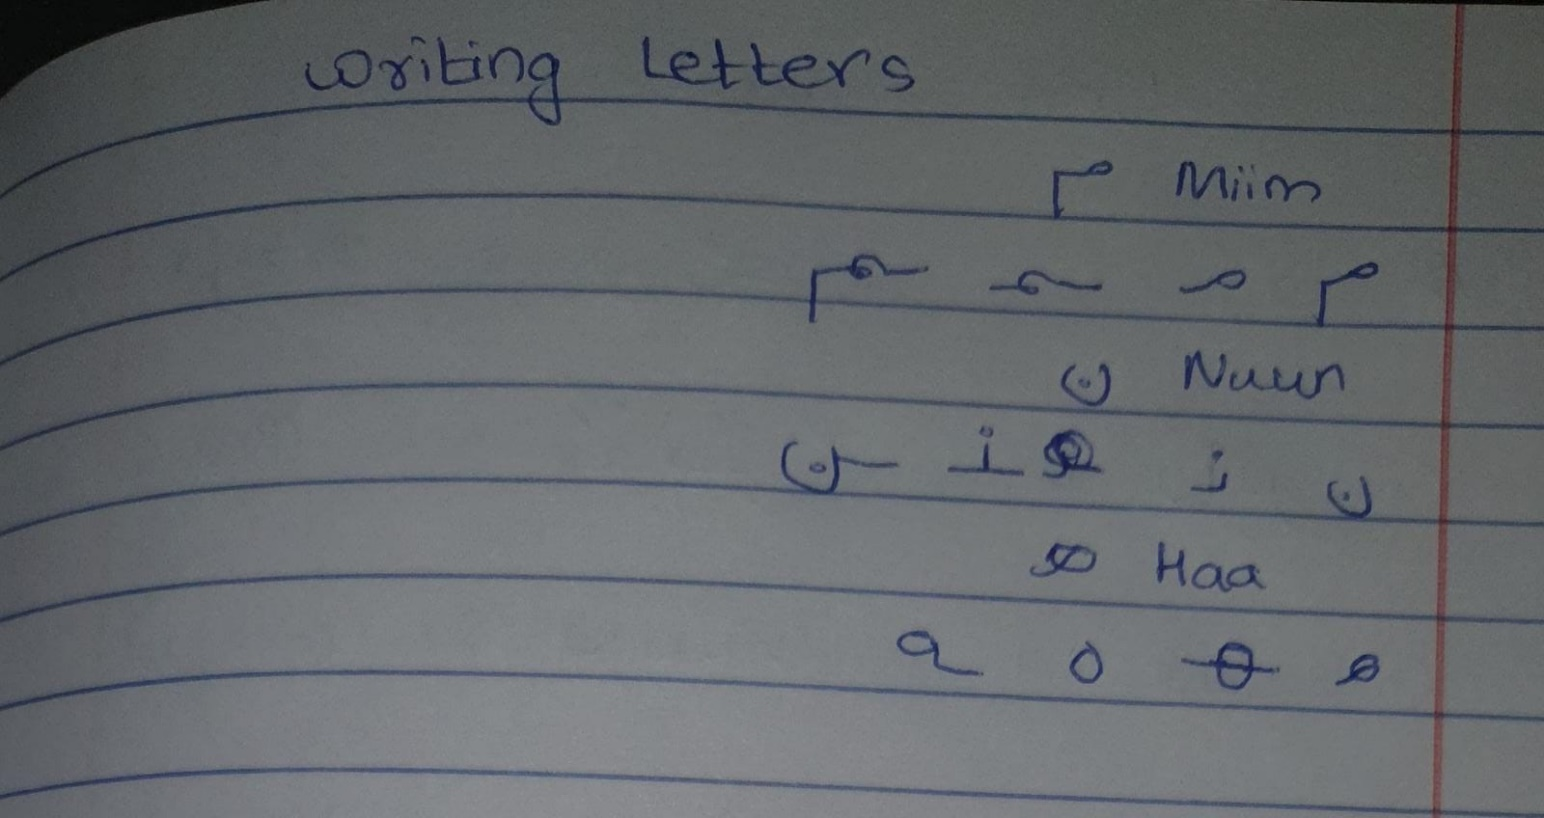 Writing Letters
م Miim
م مـ ـمـ ـم
ن Nuun
ن نـ ـنـ ـن
ه Haa
هـ ـهـ ه ـه